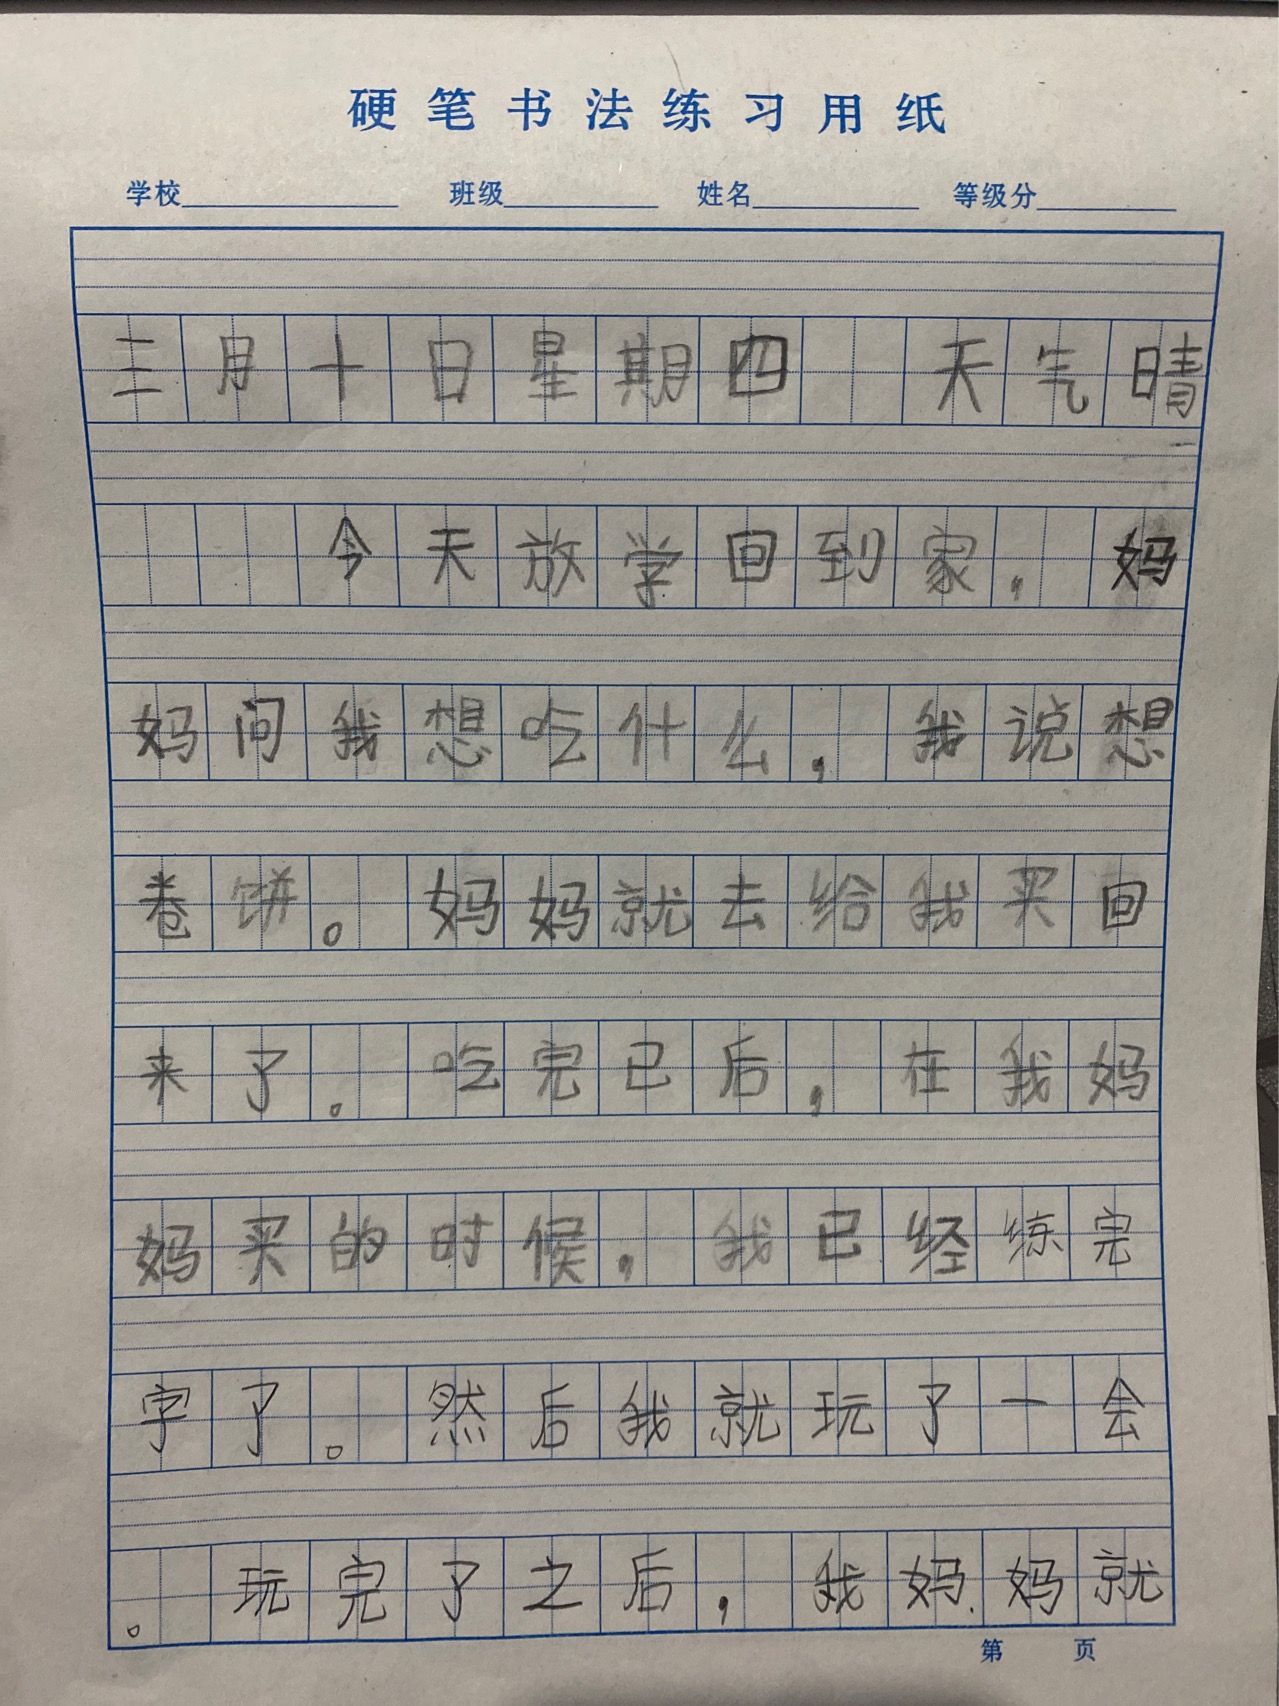 硬笔书法练习用纸
学校 班级 姓名 等级分
三月十日星期四 天气晴
今天放学回到家，妈
妈问我想吃什么，我说想
卷饼。妈妈就去给我买回
来了。吃完已后，在我妈
妈买的时候，我已经练完
字了。然后我就玩了一会
。玩完了之后，我妈妈就
第 页